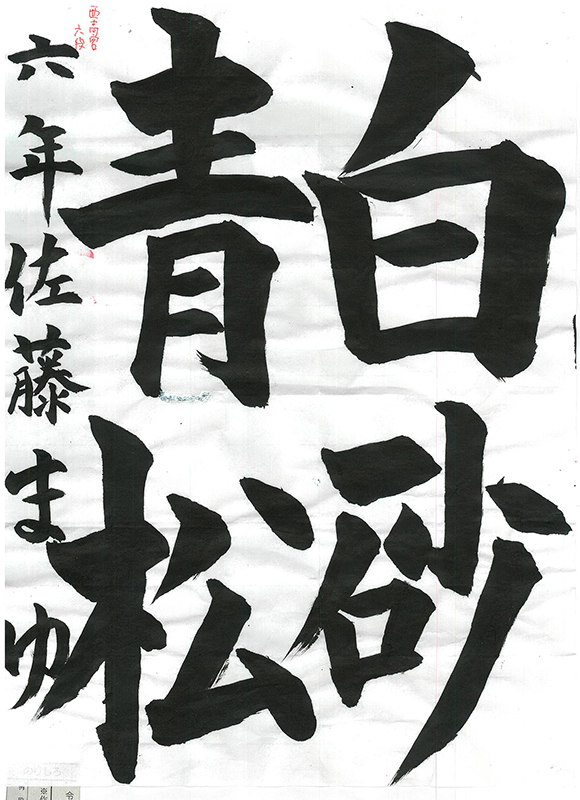 白砂
青松
六年佐藤まゆ
六段
のりしろ
令
※作